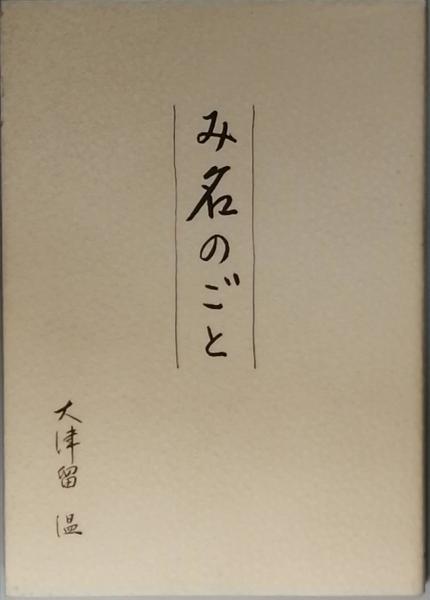 み名のごと
大津留 温